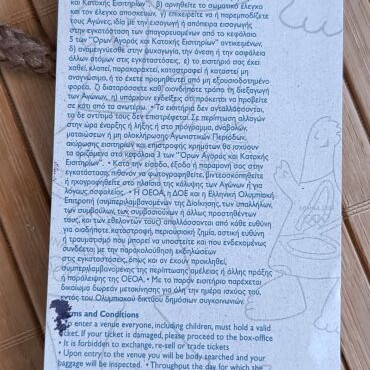 και Κατοχής Εισιτηρίων". β) αρνηθείτε το σωματικό έλεγχο
και τον έλεγχο αποσκευών, γ) επιχειρείτε να ή παρεμποδίζετε
τους Αγώνες, ιδία με την εισαγωγή ή απόπειρα εισαγωγής
στην εγκατάσταση των απαγορευμένων από το κεφάλαιο
3 των "Όρων Αγοράς και Κατοχής Εισιτηρίων" αντικειμένων,
δ) αναμειγνύεσθε στην ψυχαγωγία, την άνεση ή την ασφάλεια
άλλων ατόμων στις εγκαταστάσεις, ε) το εισιτήριό σας έχει
χαθεί, κλαπεί, παραχαραχτεί, καταστραφεί ή καταστεί μη
αναγνώσιμο, ή το έχετε προμηθευτεί από μη εξουσιοδοτημένο
φορέα, ζ) διαταράσσετε καθ' οιονδήποτε τρόπο τη διεξαγωγή
των Αγώνων, η) υπάρχουν ενδείξεις ότι πρόκειται να προβείτε
σε κάτι από τα ανωτέρω. • Τα εισιτήρια δεν ανταλλάσσονται,
τα δε αντίτιμό τους δεν επιστρέφεται. Σε περίπτωση αλλαγών
στην ώρα έναρξης ή λήξης ή στο πρόγραμμα, αναβολών,
ματαιώσεων ή μη ολοκλήρωσης Αγωνιστικών Περιόδων,
ακύρωσης εισιτηρίων και επιστροφής χρημάτων θα ισχύουν
τα οριζόμενα στο κεφάλαιο 3 των "Όρων Αγοράς και Κατοχής
Εισιτηρίων". • Κατά την είσοδο, έξοδο ή παραμονή σας στην
εγκατάσταση, πιθανόν να φωτογραφηθείτε, βιντεοσκοπηθείτε
ή ηχογραφηθείτε στο πλαίσιο της κάλυψης των Αγώνων ή για
λόγους ασφαλείας. • Η ΟΕΟΑ, η ΔΟΕ και η Ελληνική Ολυμπιακή
Επιτροπή (συμπεριλαμβανομένων της Διοίκησης, των υπαλλήλων,
των συμβούλων, των συμβασιούχων ή άλλως προστηθέντων
τους, και των εθελοντών τους) απαλλάσσονται από κάθε ευθύνη
για οιαδήποτε καταστροφή, περιουσιακή ζημία, αστική ευθύνη
ή τραυματισμό που μπορεί να υποστείτε και που ενδεχομένως
συνδέεται με την παρακολούθηση εκδηλώσεων
στις εγκαταστάσεις, όπως και αν έχουν προκληθεί,
συμπεριλαμβανομένης της περίπτωσης αμέλειας ή άλλης πράξης
ή παράλειψης της ΟΕΟΑ. • Με το παρόν εισιτήριο παρέχεται
δικαίωμα δωρεάν μετακίνησης για όλη την ημέρα ισχύος του,
εντός του Ολυμπιακού δικτύου δημόσιων συγκοινωνιών.
Terms and Conditions
To enter a venue everyone, including children, must hold a valid
ticket. If your ticket is damaged, please proceed to the box-office
• It is forbidden to exchange, re-sell or trade tickets
• Upon entry to the venue you will be body searched and your
baggage will be inspected. • Throughout the day for which the